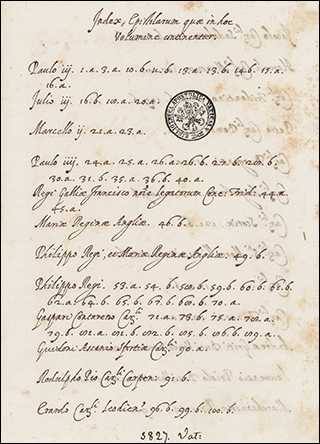 Index, Epistolarum quæ in hoc
Volumine continentur.
Paulo iij. 1.a. 3.a. 10.b. 11.b. 13.a. 13.b. 14.b. 15.a.
16.a.
Julio iij. 16.b. 20.a.
Marcello ij. 21.a. 23.a.
Paulo iiij. 24.a. 25.a. 26.a. 26.b. 27.b.
30.a. 31.b. 35.a. 36.b. 40.a.
Regi Galliæ Francisco Legatorum Conc. Trid. 44.a.
45.a.
Mariæ Reginæ Angliæ. 46.b.
Philippo Regi, et Mariæ Reginæ Angliæ. 49.b.
Philippo Regi. 53.a. 54.b. 59.b. 60.b. 61.b.
62.a. 64.b. 65.b. 67.b. 70.a.
Gaspari Contareno Car.li 71.a. 73.b. 75.a.
79.b.
Guidoni Ascanio Sfortiæ Car.li 90.a.
Rodulpho Pio Car.li Carpen. 91.b.
Erardo Car.li Leodien. 96.b. 99.b. 100.b.
5827. Vat.